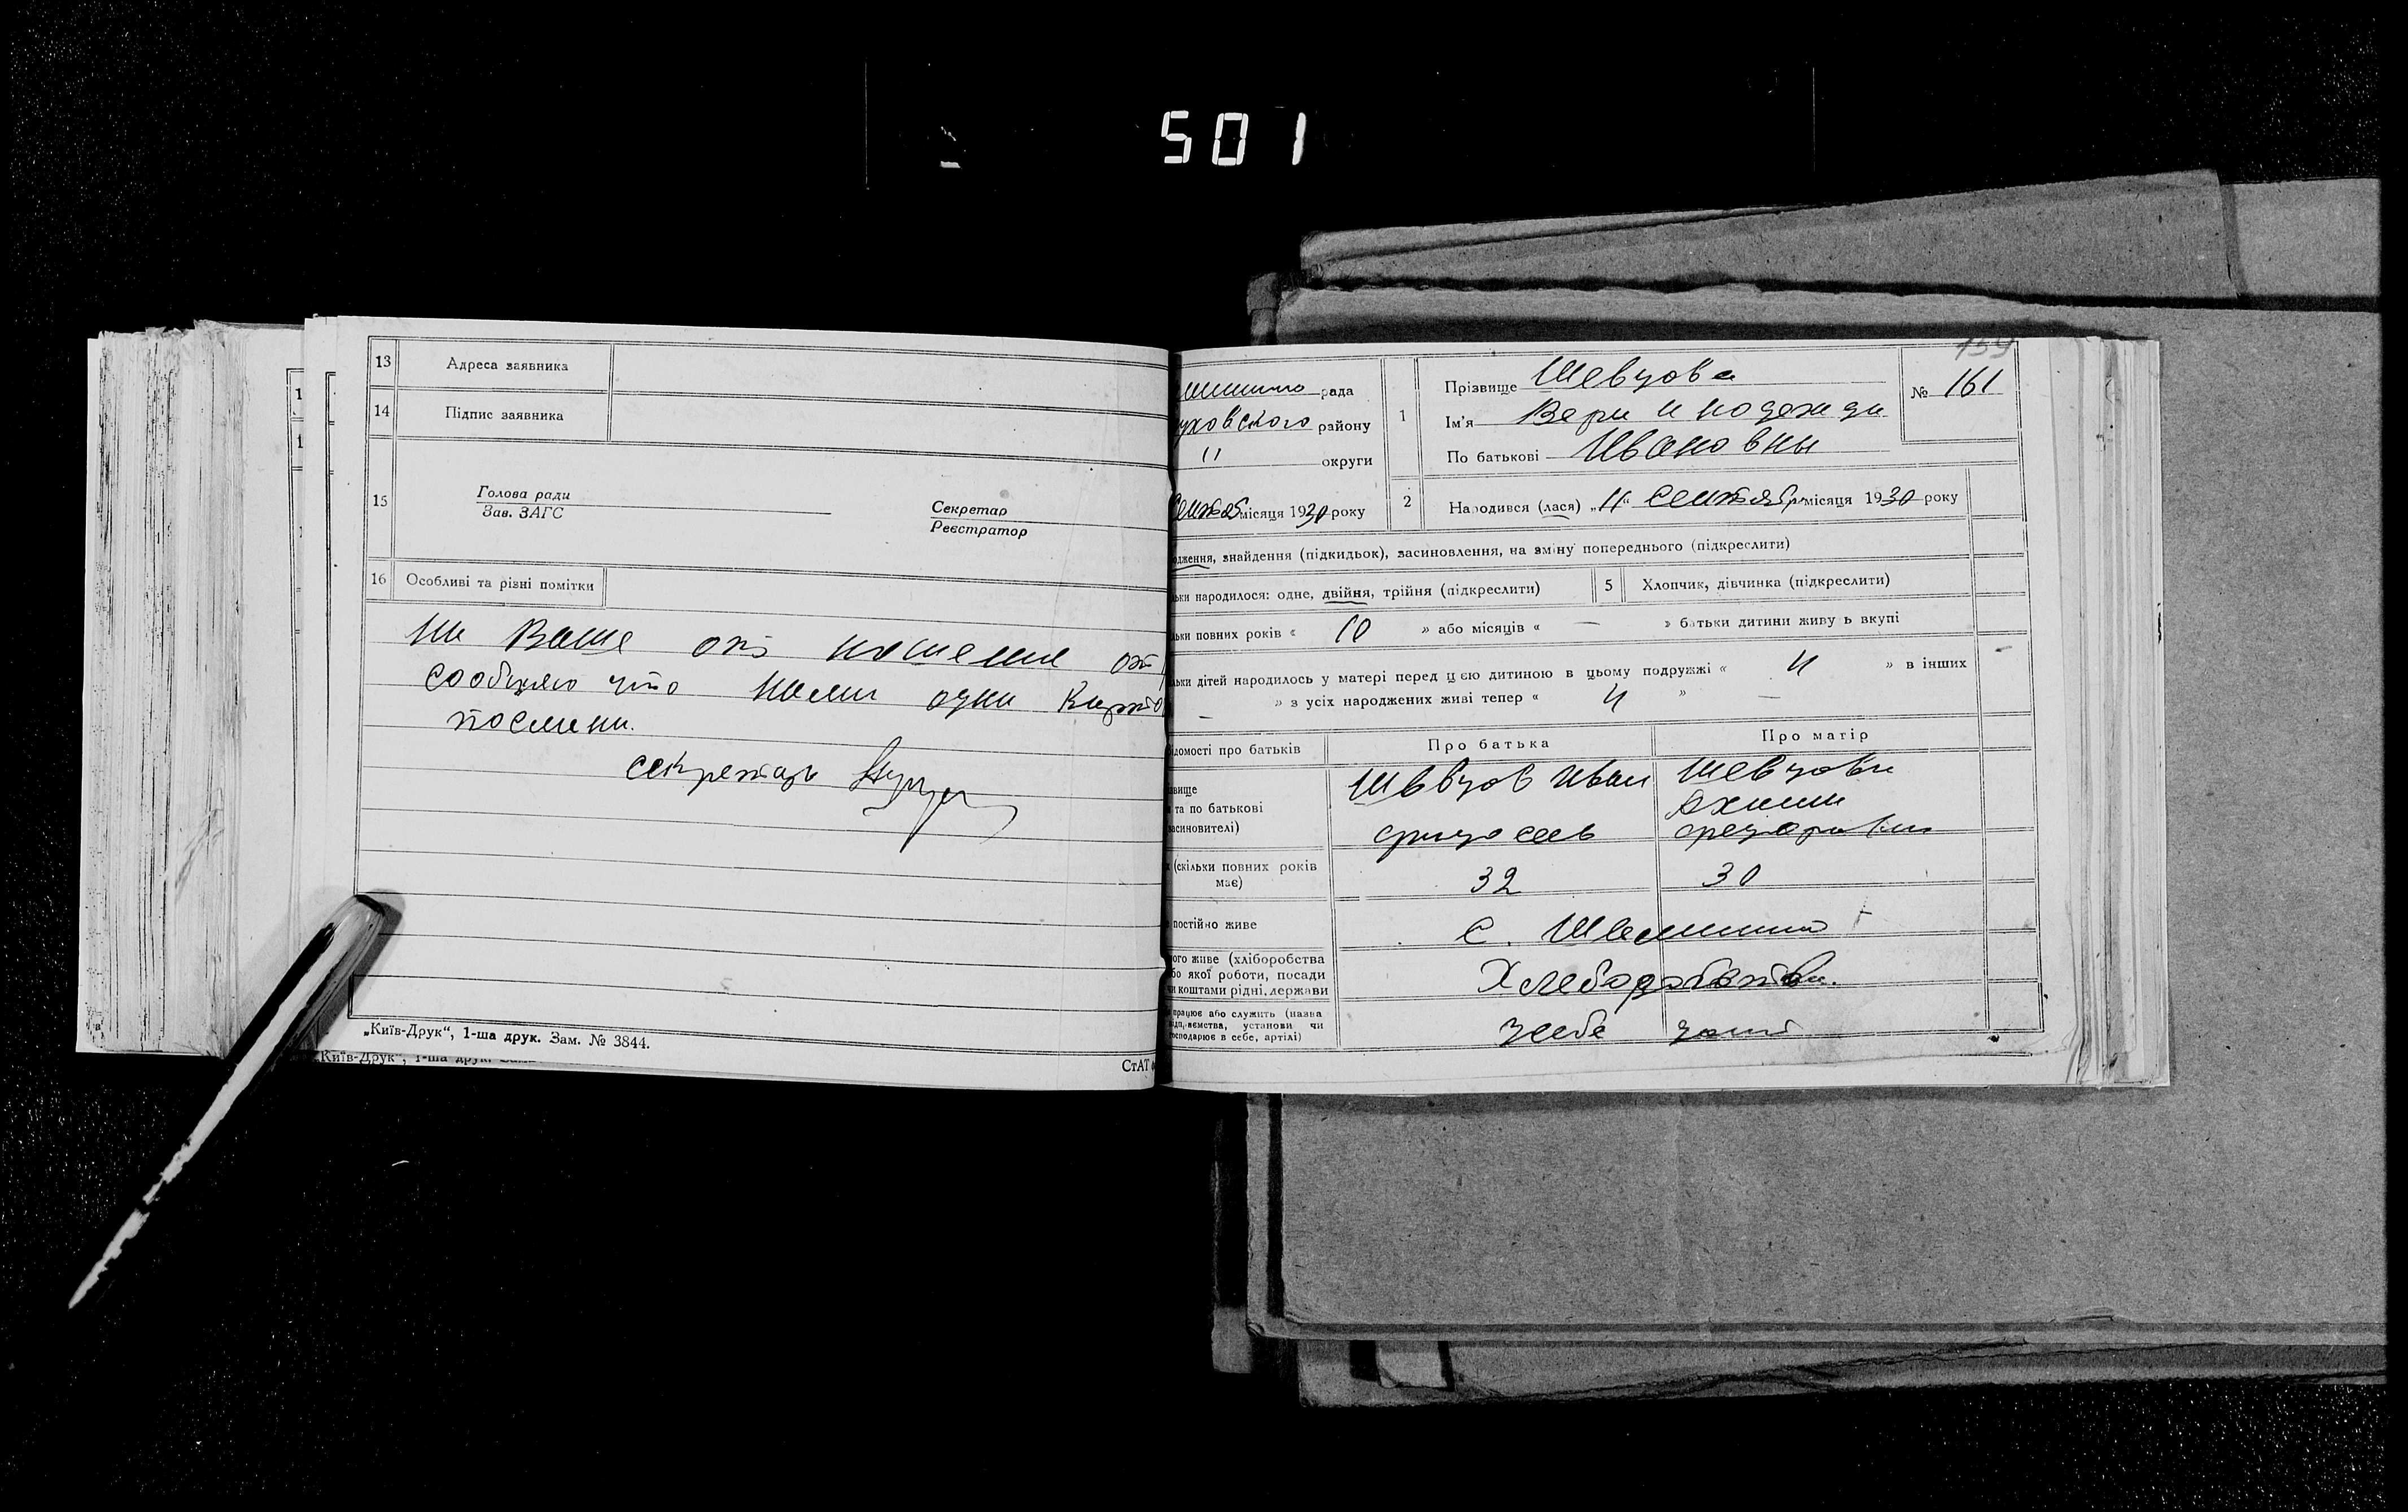 501
13 Адреса заявника
14 Підпис заявника
15 Голова ради
Зав. ЗАГС
Секретар
Реєстратор
16 Особливі та різні помітки
На Ваше от
сообщаю что нами одни
посланы.
секретарь
„Київ-Друк“, 1-ша друк. Зам. № 3844.
СтАТ
Київ-Друк“, 1-ша друк.
рада
уховского району
" округи
місяця 1930 року
159
1 Прізвище Шевцова
Ім'я Вера и Надежда
По батькові Ивановны
№ 161
2 Народився (лася) „11“ Сентября місяця 1930 року
одження, знайдення (підкидьок), засиновлення, на зміну попереднього (підкреслити)
льки народилося: одне, двійня, трійня (підкреслити)
5 Хлопчик, дівчинка (підкреслити)
льки повних років « 10 » або місяців « — » батьки дитини живу ь вкупі
льки дітей народилось у матері перед цією дитиною в цьому подружжі « 4 » в інших
— » з усіх народжених живі тепер « 4 » —
ідомості про батьків
Про батька
Про матір
звище
та по батькові
асиновителі)
Шевцов Иван
Шевцова
(скільки повних років
має)
32
30
постійно живе
с.
ого живе (хліборобства
бо якої роботи, посади
и коштами рідні, держави
Хлебороботва.
працює або служить (назва
установи чи
господарює в себе, артілі)